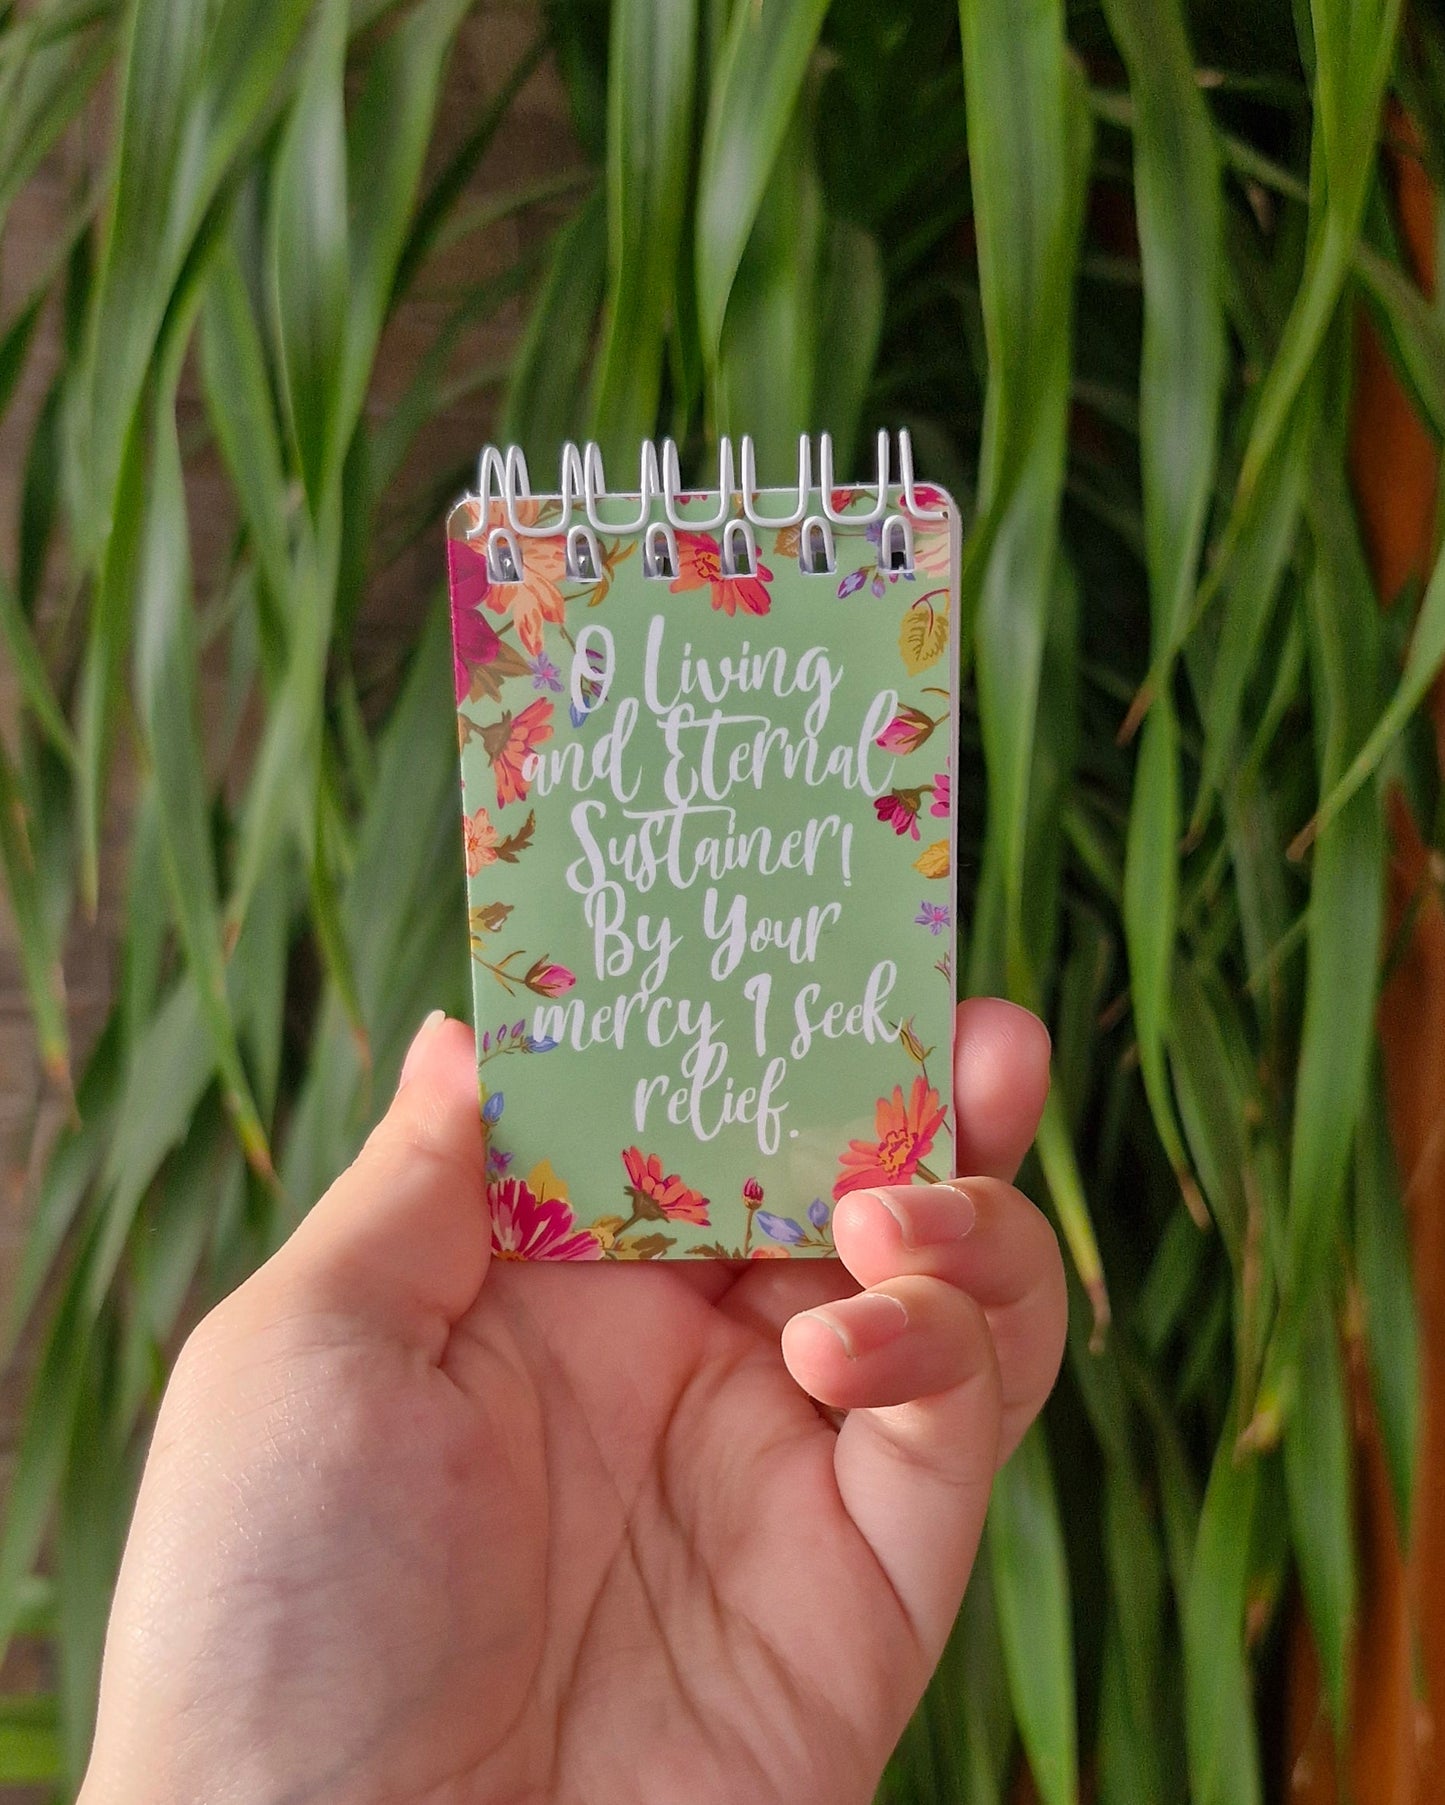 O Living
and Eternal
Sustainer!
By Your
mercy I seek
relief.